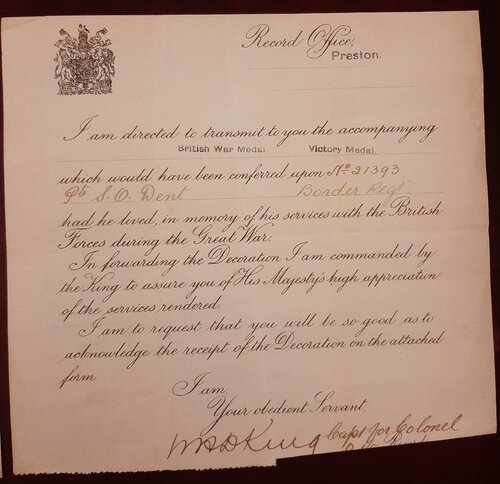 Record Office,
Preston.
I am directed to transmit to you the accompanying
British War Medal. Victory Medal.
which would have been conferred upon No 21393
Pte S. O. Dent Border Regt
had he lived, in memory of his services with the British
Forces during the Great War.
In forwarding the Decoration I am commanded by
the King to assure you of His Majesty's high appreciation
of the services rendered.
I am to request that you will be so good as to
acknowledge the receipt of the Decoration on the attached
form
I am,
Your obedient Servant,
King Capt for Colonel